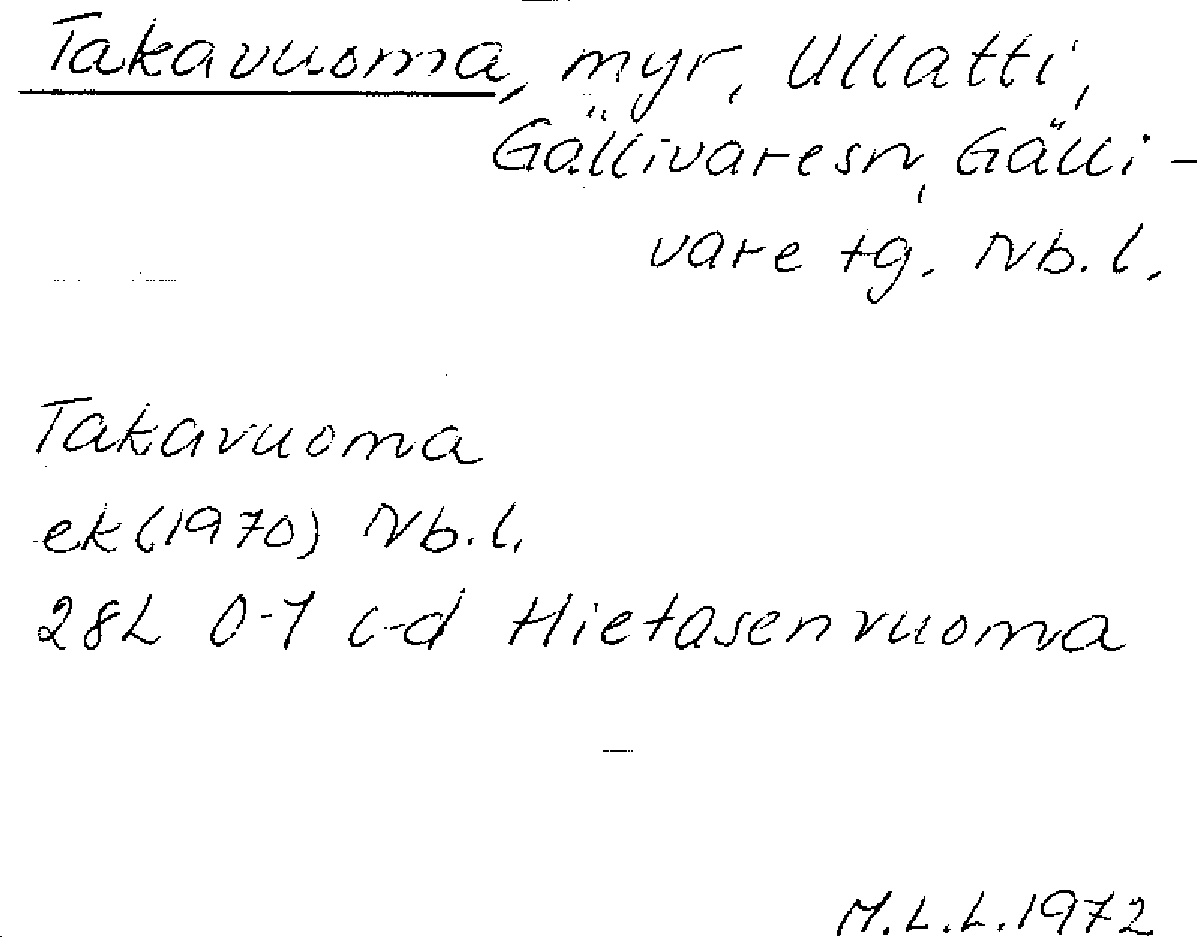 Takavuoma, myr, Ullatti,
Gällivare sn, Gälli-
vare tg. Nb. l.
Takavuoma
ek (1970) Nb. l.
28L 0-1 c-d Hietasenvuoma
M.L.L. 1972